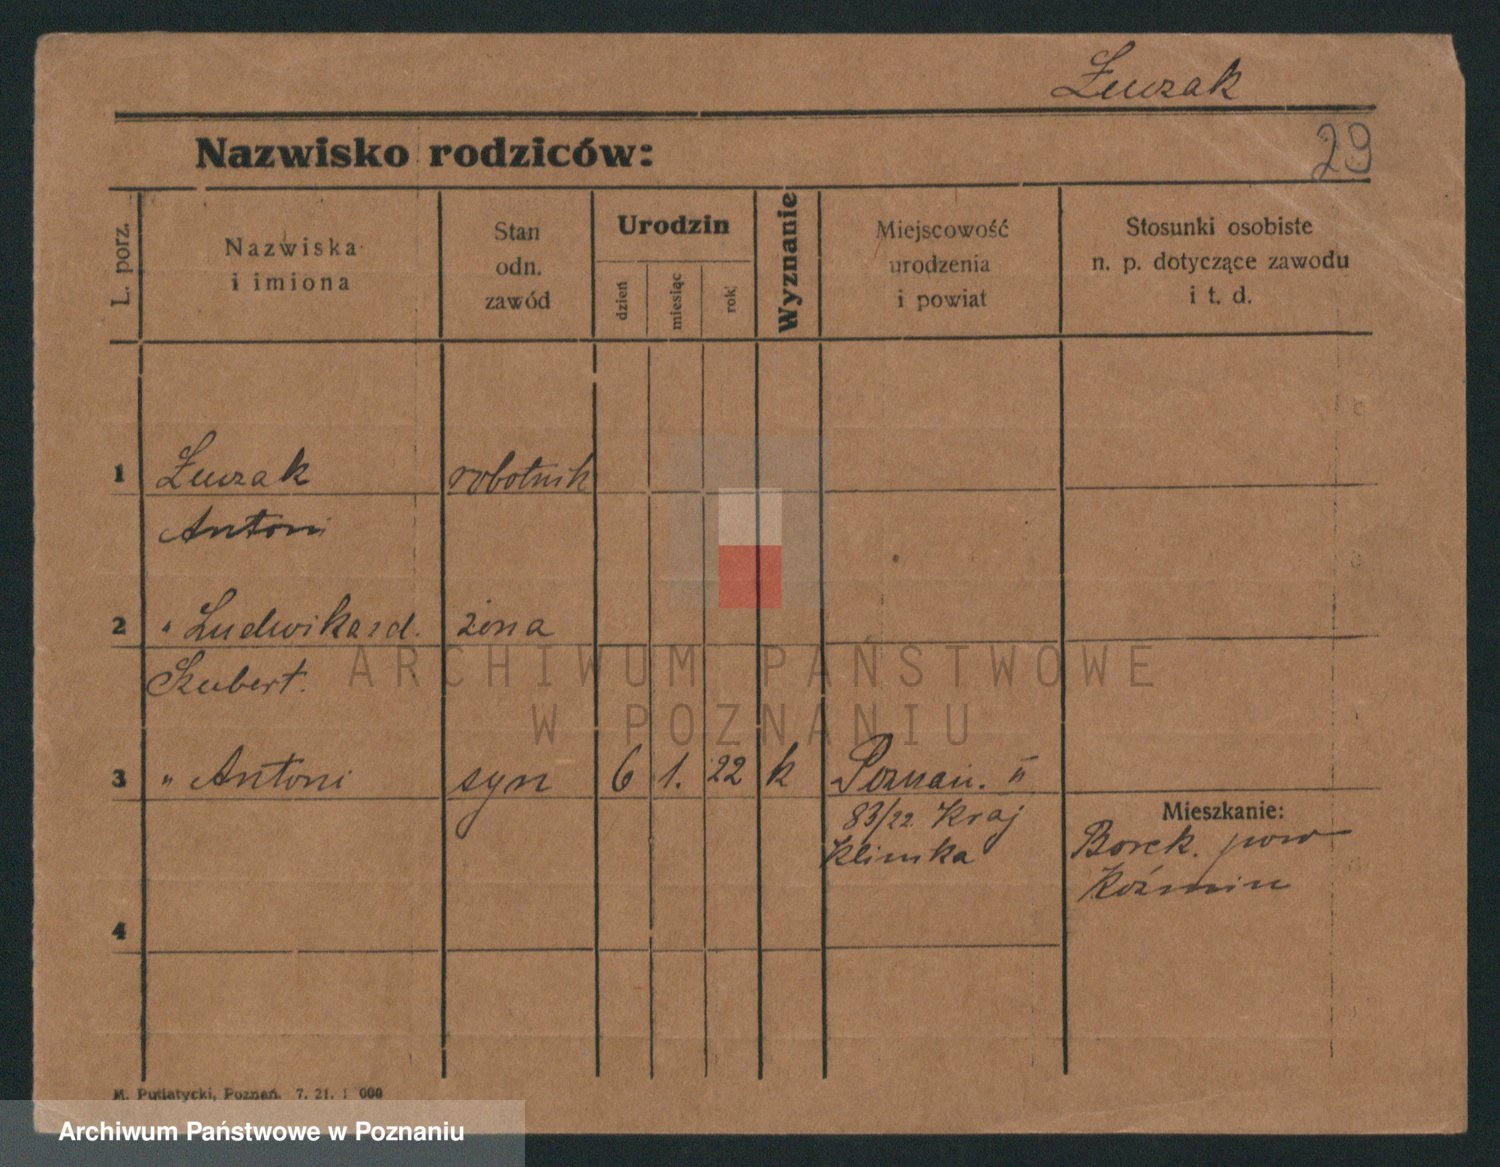 Żurzak
Nazwisko rodziców:
29
L. porz.
Nazwiska
i imiona
Stan
odn.
zawód
Urodzin
dzień
miesiąc
rok
Wyznanie
Miejscowość
urodzenia
i powiat
Stosunki osobiste
n. p. dotyczące zawodu
i t. d.
1 Żurzak robotnik
Antoni
2 " Ludwika zd. żona
Szubert.
3 " Antoni syn 6 1. 22 k Poznań. II
83/22 Kraj
Klinika
Mieszkanie:
Borek. pow
Koźmin
4
M. Putiatycki, Poznań. 7. 21. 1 000
ARCHIWUM PAŃSTWOWE
W POZNANIU
Archiwum Państwowe w Poznaniu